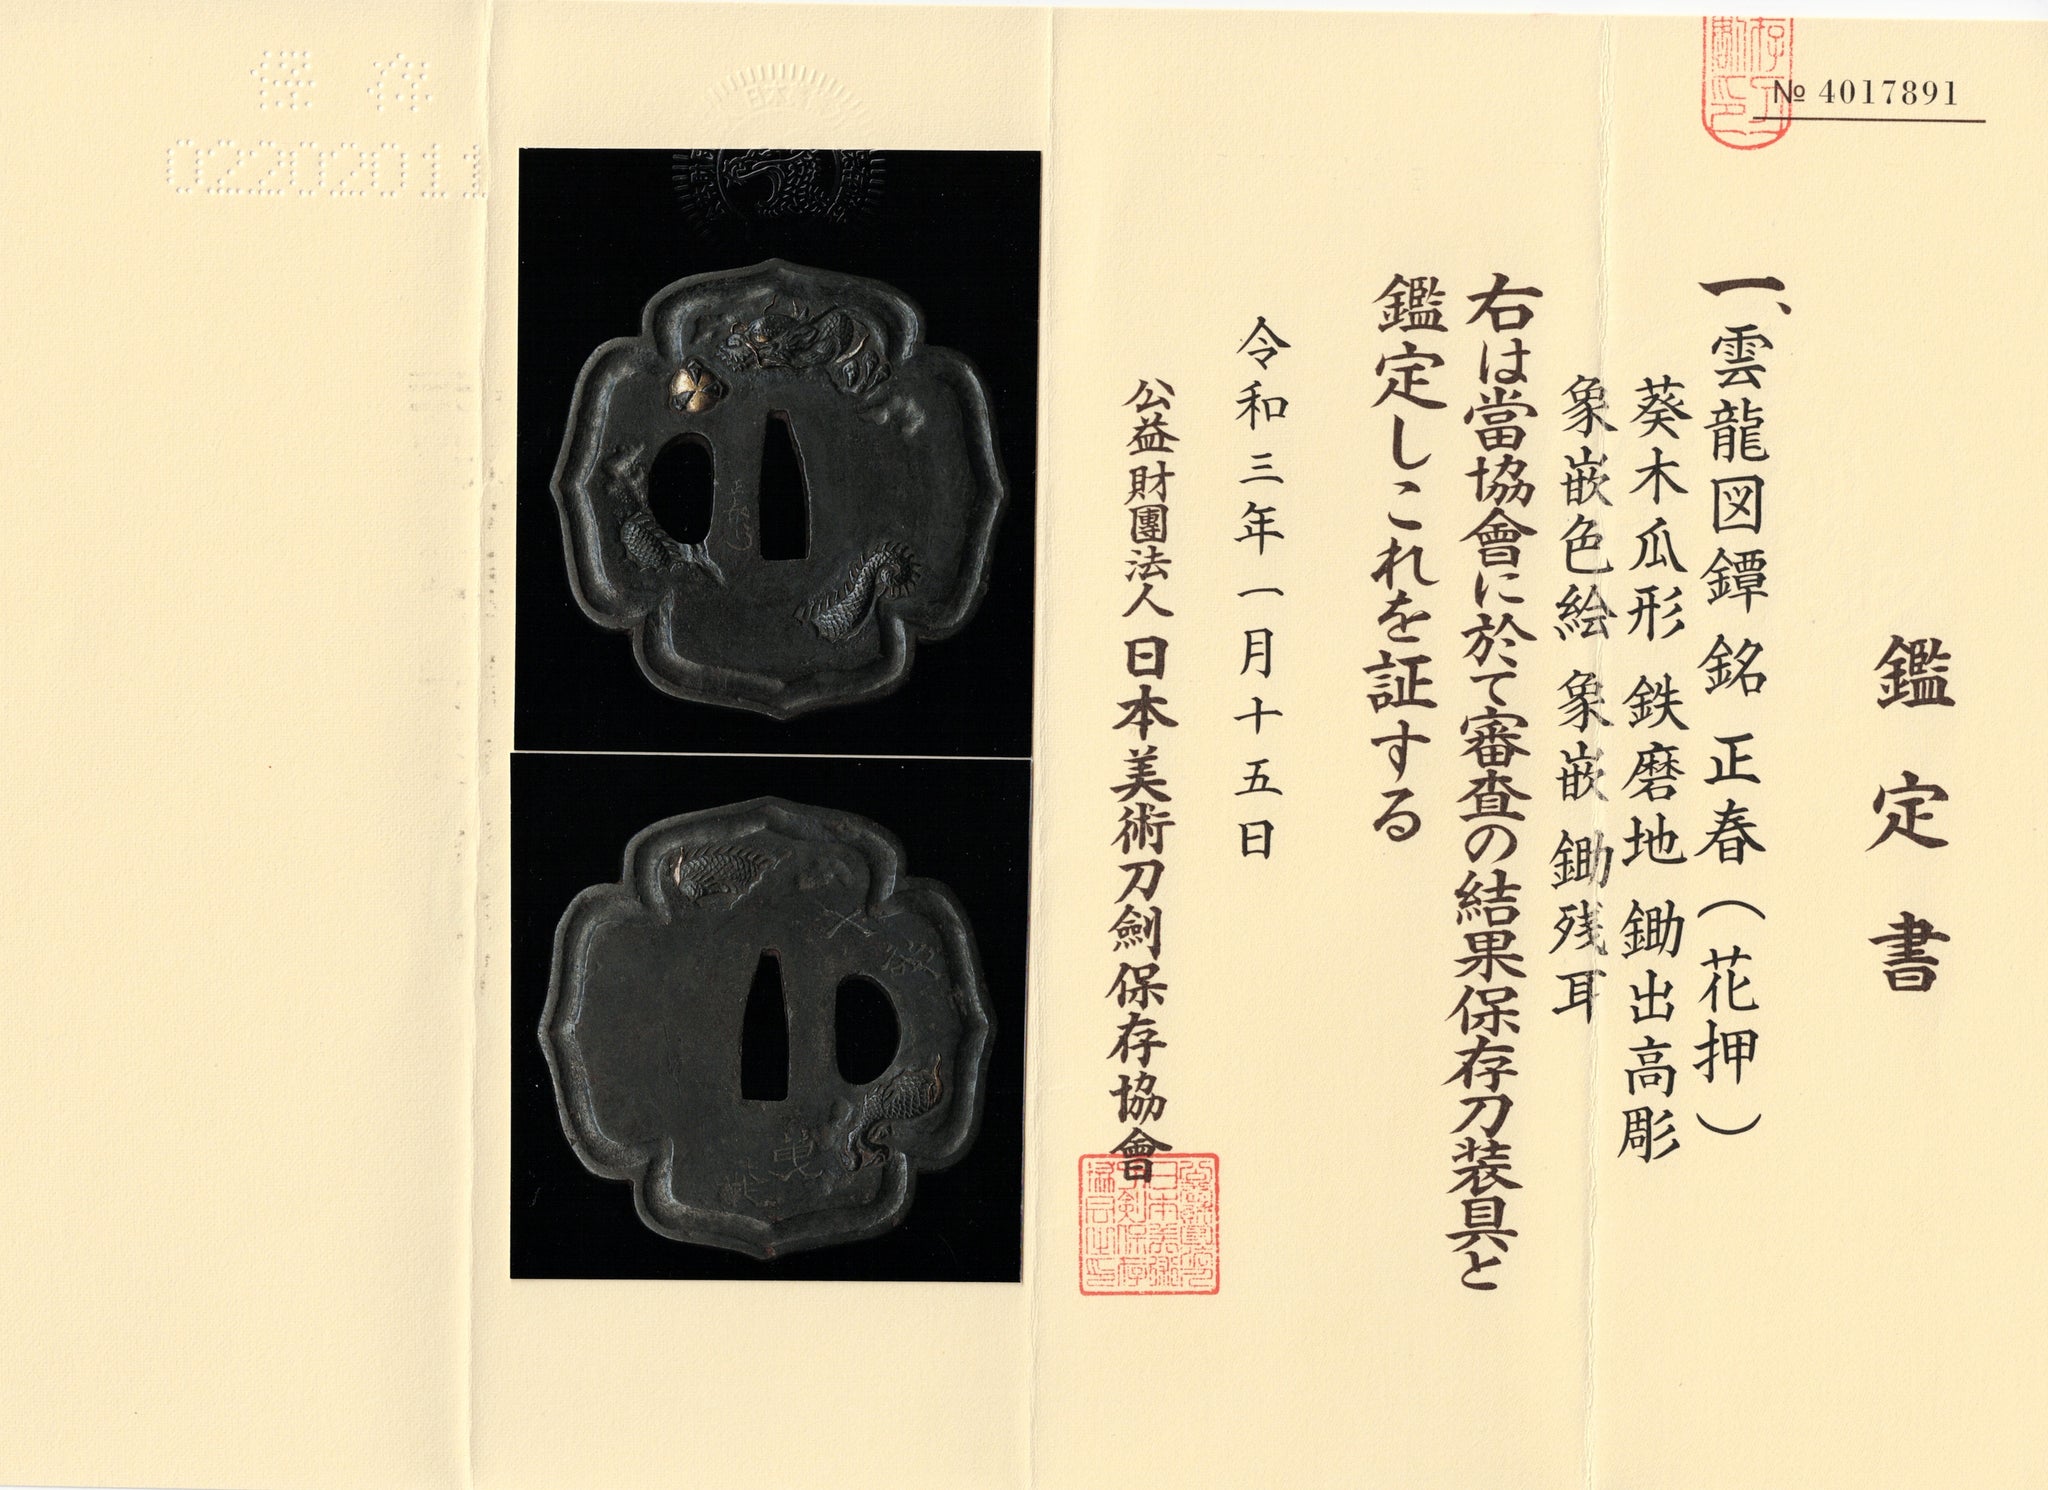 № 4017891
鑑定書
一、雲龍図鐔 銘 正春（花押）
葵木瓜形 鉄磨地 鋤出高彫
象嵌色絵 象嵌 鋤残耳
右は當協會に於て審査の結果保存刀装具と
鑑定しこれを証する
令和三年一月十五日
公益財團法人 日本美術刀劍保存協會
保存
02202011